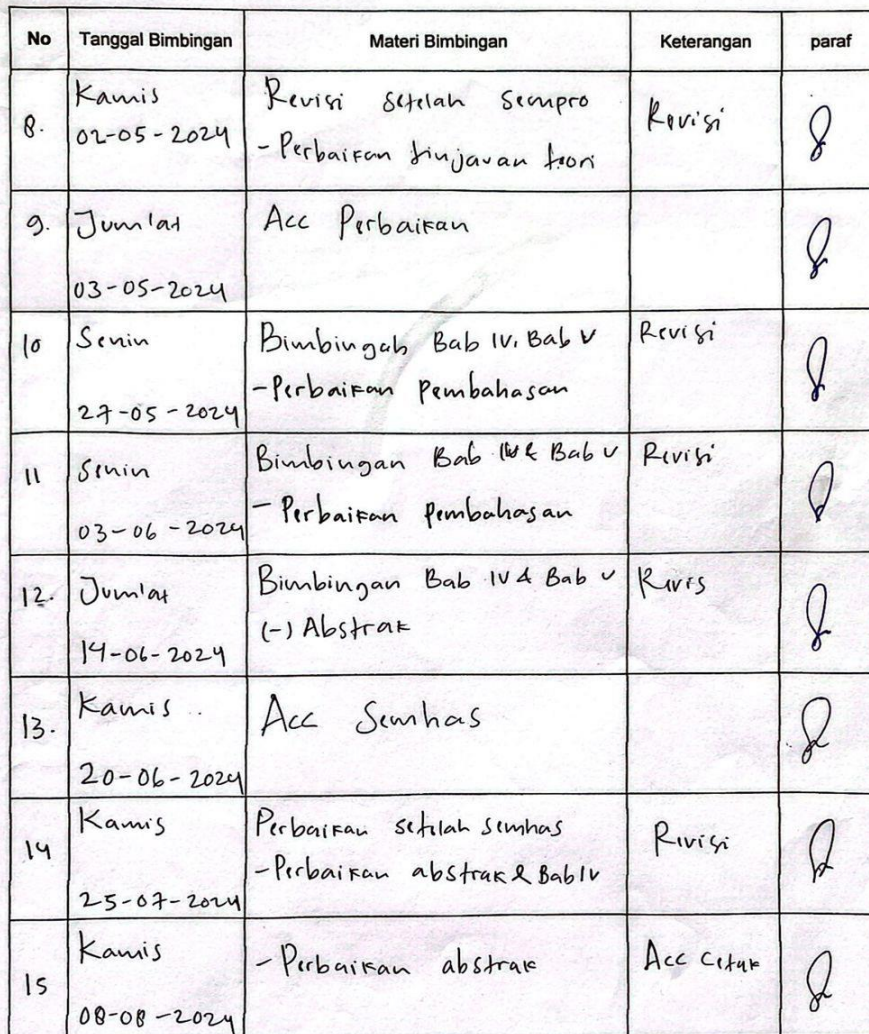 No Tanggal Bimbingan Materi Bimbingan Keterangan paraf
8. Kamis 02-05-2024 Revisi setelah sempro Revisi
- Perbaikan tinjauan teori
9. Jum'at 03-05-2024 Acc Perbaikan
10 Senin 27-05-2024 Bimbingab Bab IV, Bab V Revisi
- Perbaikan pembahasan
11 Senin 03-06-2024 Bimbingan Bab IV & Bab V Revisi
- Perbaikan pembahasan
12. Jum'at 14-06-2024 Bimbingan Bab IV & Bab V Revis
(-) Abstrak
13. Kamis 20-06-2024 Acc Semhas
14 Kamis 25-07-2024 Perbaikan setelah semhas Revisi
- Perbaikan abstrak & Bab IV
15 Kamis 08-08-2024 - Perbaikan abstrak Acc Cetak